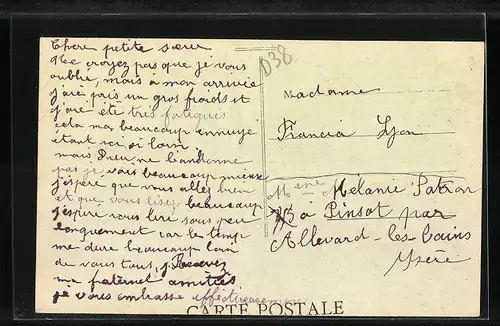 Chere petite sœur
Ne croyez pas que je vous
oublié, mais à mon arrivée
j'ai pris un gros froids et
j'are été tres fatiguée
cela ma beaucoup ennuyé
étant ici si loin.
mais Dieu ne l'andonne
pas je vais beaucoup mieux
j'espère que vous alles bien
et que vous lisez beaucoup
j'espère vous lire sous peu
longuement car le temp
me dure beaucoup loin
de vous tous, j. Recevez
ma fraternel amitiés
je vous embrasse affectueusement
D38
Madame
Francia Lyon
Mme Mélanie Patron
à Pinsot par
Allevard-les-bains
Ysère
CARTE POSTALE